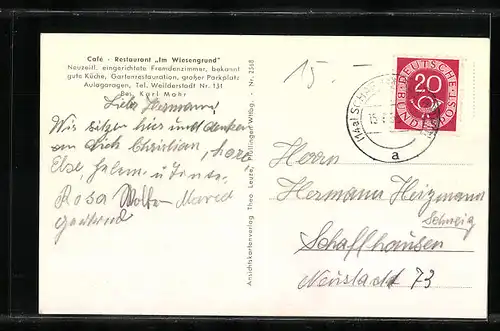 Café - Restaurant „Im Wiesengrund"
Neuzeitl. eingerichtete Fremdenzimmer, bekannt
gute Küche, Gartenrestauration, großer Parkplatz
Autogaragen, Tel. Weilderstadt Nr. 131
Bes. Karl Mohr
Liebe Hermann!
Wir sitzen hier und denken
an dich Christian,
Else, Helene, u.
Rosa Wolter
Gertrud
Ansichtskartenverlag Theo Leuze, Pfullingen/Wttbg. - Nr. 2568
15.-
(14a) SCHAF
15.
a
DEUTSCHE BUNDESPOST
20
Herrn
Hermann Heizmann
Schweiz
Schaffhausen
Neustadt 73